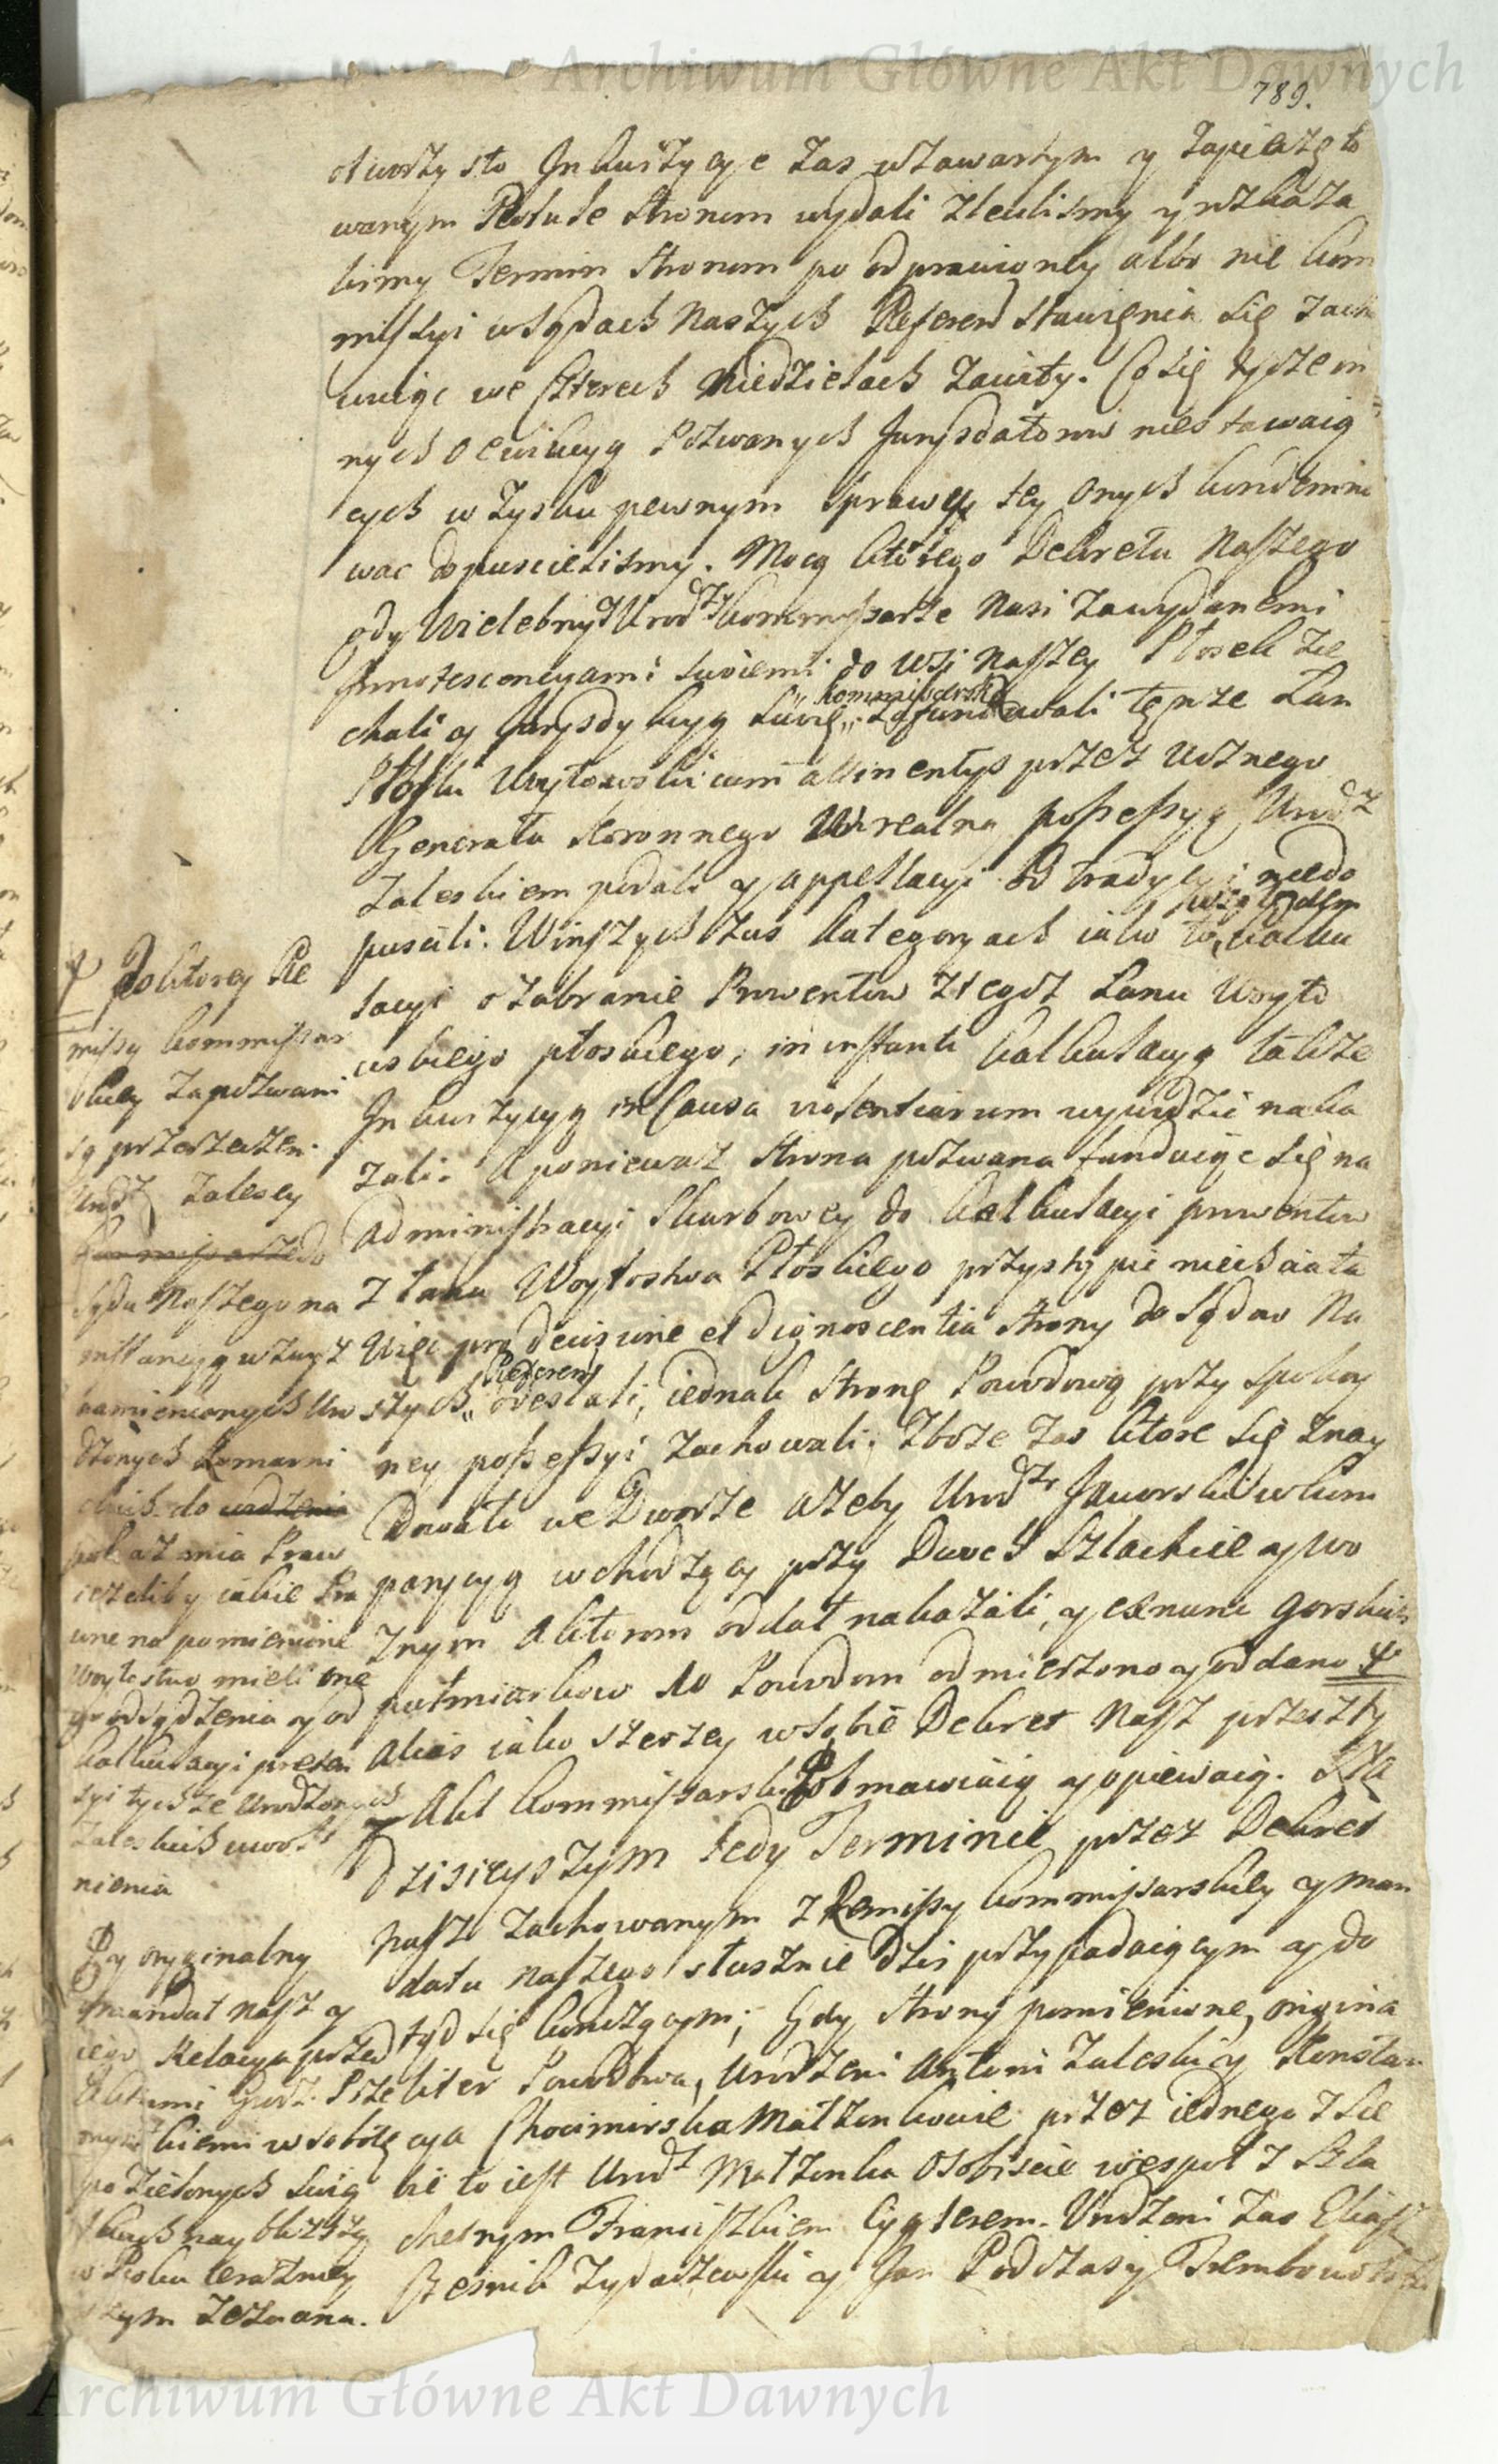 Archiwum Główne Akt Dawnych
789.
otworzysto Inkwizycye zas w zawartym y zapieczęto
wanym Rotule stronom wydali zleciliśmy y wskaza
lismy Termin stronom po odprawioney albo nie kom
missyi w sądach Naszych Referen stawienia się zacho
wuiąc we czterech Niedzielach zawity. Co się tycze in
nych o ewikcyą Pozwanych Jurysdatorow niestawaią
cych w zysku pewnym sprawy tey onych kondemno
wac dopuscielismy. Mocą ktorego Dekretu Naszego
gdy Wielebny y Urodz kommissarze Nasi za wydanemi
Innotescencyami swiemi do wsi Naszey Płosek zie
chali y Jurysdykcyą swię kommissarską zafundowali tęnze Łan
Płoski Woytowski cum attinentys przez Woznego
Generała Koronnego w realną possessyą Urodz
Zaleskiem podali y appellacyi od tradycyi niedo
puscili. W inszych zas kategoryach iako to względem kalku
lacyi o zabranie Prowentow z tegoz Łanu Woyto
wskiego płoskiego, in instanti kalkulacyą takze
Inkwizycyą in Causa violentiarum wywodzić naka
zali. A poniewaz strona pozwana funduiąc się na
administracyi skarbowey do kalkulacyi prowentow
z łanu Woytostwa Płoskiego przystąpić niechciała
Więc pro decisione et dignoscentia strony do sądow Na
szych Referen odesłali, iednak stronę Powodową przy spokoy
ney possessyi zachowali. Zboze zas ktore się znay
dowało we Dworze azeby Urodz Jaworski w kom
parycyą wchodzący przy Dwoch Szlachcie y Wo
znym aktorom oddał nakazali, y ex nunc gorskich
połmiarkow do Powodom odmierzono y oddano ⸸
Alias iako szerzey w sobie Dekret Nasz przeszły
y Akt kommissarski obmawiaią y opiewaią. Na
dzisieyszym tedy Terminie przez Dekret
Nasz zachowanym z Remissy kommissarskiey y man
datu naszego słusznie dzis przypadaiącym y do
tąd się kończącym; Gdy strony pomienione, origina
liter Powodowa, Urodzeni Antoni Zaleski y Konstan
cya Chocimirska Małzonkowie przez iednego z sie
bie to iest Urodz Małzonka osobiscie wespoł z Szla
chetnym Franciszkiem Cyglerem. Urodzeni zas Eliasz
Czesnik Zydaczewski y Jan Podczaszy Trembowelski
⸸ Po ktorey Re
missy kommissar
skiey zapozwani
są przerzeczeni
Urodz Zalescy
do
sądu Naszego na
instancyą w zwyż
namienionych Uro
dzonych Komarni
ckich do
pokazania Praw
iezeliby iakie Pra
wne na pomienione
Woytostwo mieli one
go odsądzenia y od
kalkulacyi preten
syi tychze Urodzonych
Zaleskich uwol
nienia
Py oryginalny
mandat nasz y
iego Relacya przed
Aktami Grodz Prze
myskiemi w sobotę
po Zielonych Swią
tkach naybliższą
w Roku teraźniey
szym zeznana.
Archiwum Główne Akt Dawnych